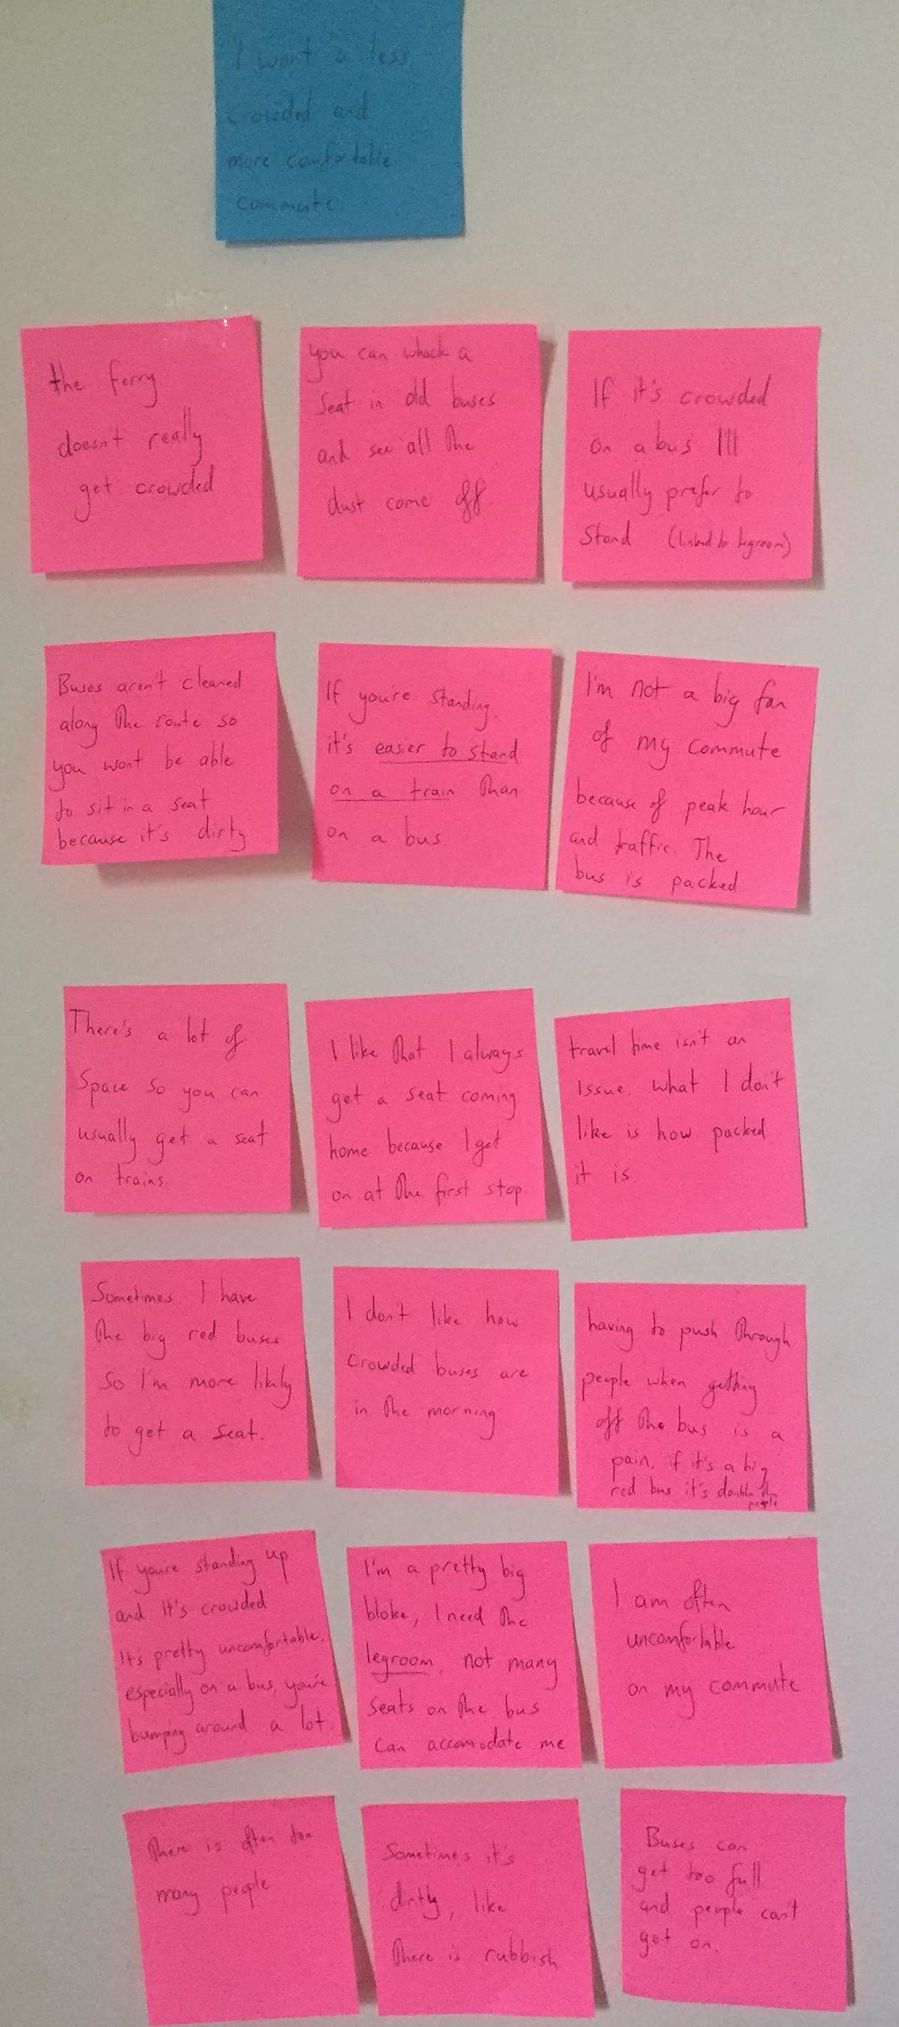 I want a less
crowded and
more comfortable
commute
the ferry
doesn't really
get crowded
you can whack a
seat in old buses
and see all the
dust come off.
If it's crowded
on a bus I'll
usually prefer to
stand (linked to legroom)
Buses aren't cleaned
along the route so
you wont be able
to sit in a seat
because it's dirty
If you're standing,
it's easier to stand
on a train than
on a bus
I'm not a big fan
of my commute
because of peak hour
and traffic. The
bus is packed
There's a lot of
space so you can
usually get a seat
on trains
I like that I always
get a seat coming
home because I get
on at the first stop.
travel time isn't an
issue, what I don't
like is how packed
it is
Sometimes I have
the big red buses
so I'm more likely
to get a seat.
I don't like how
crowded buses are
in the morning
having to push through
people when getting
off the bus is a
pain, if it's a big
red bus it's double the
people
If you're standing up
and it's crowded
it's pretty uncomfortable,
especially on a bus, you're
bumping around a lot
I'm a pretty big
bloke, I need the
legroom, not many
seats on the bus
can accomodate me
I am often
uncomfortable
on my commute
There is often too
many people
Sometimes it's
dirty, like
there is rubbish
Buses can
get too full
and people can't
get on.